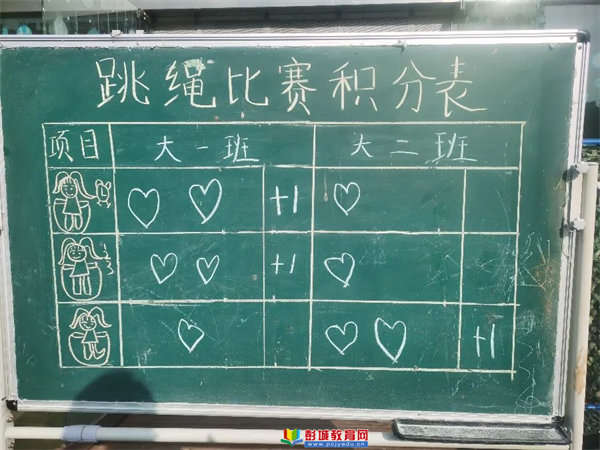 跳绳比赛积分表
项目 大一班 大二班
+1
+1
+1
彭城教育网
www.pcjyedu.cn